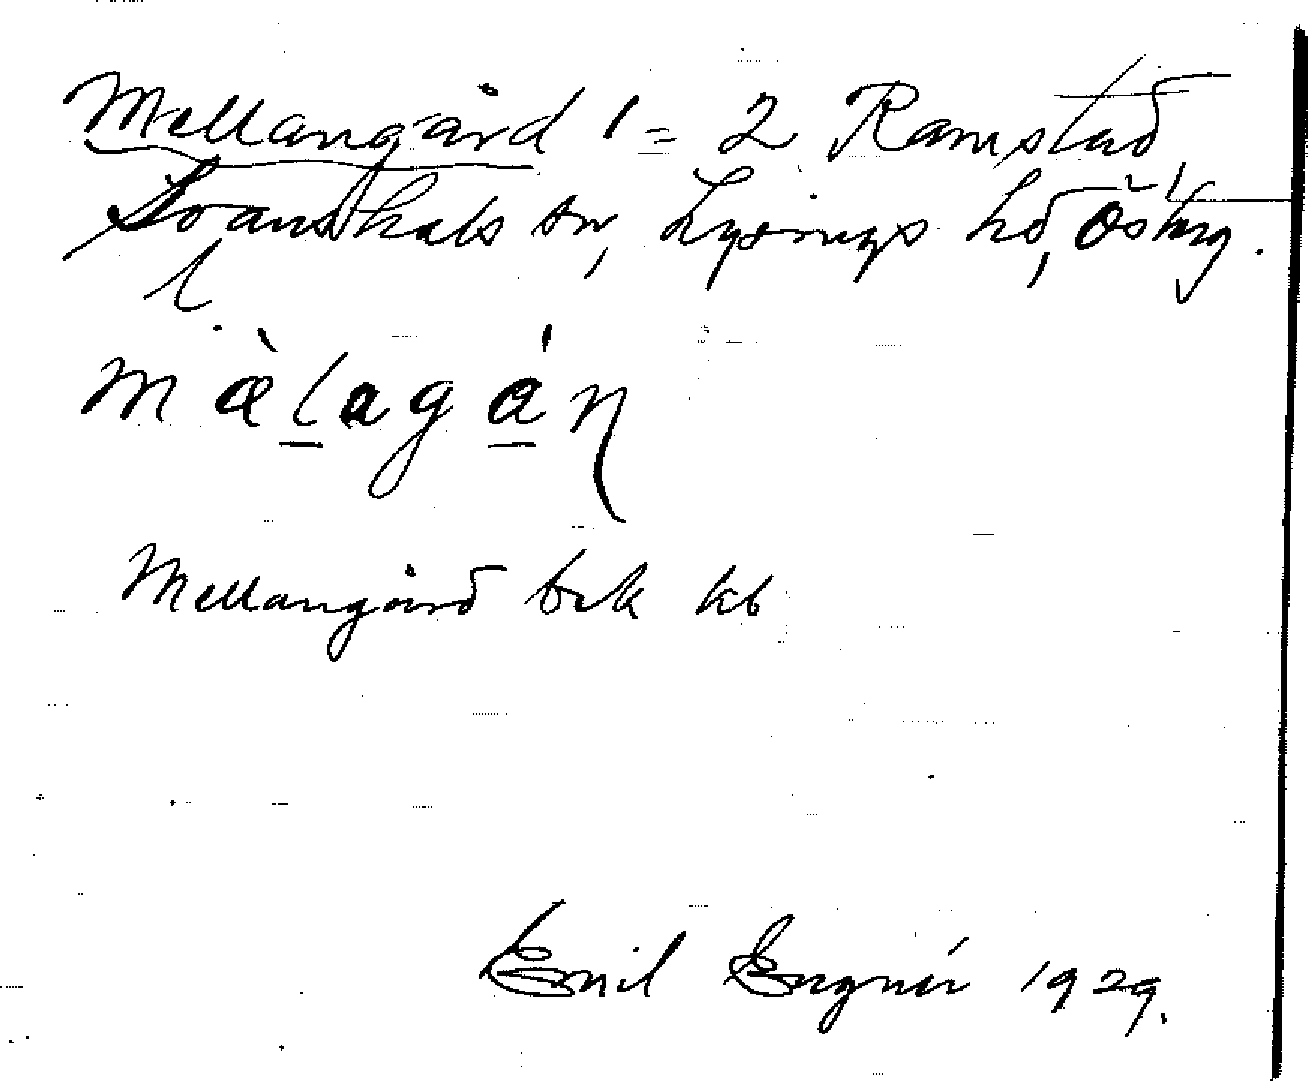 Mellangård 1-2 Ramstad,
Svanshals sn, Lysings hd, Östg.
mæ̀lagán
Mellangård bek kb
Emil Engnér 1929.